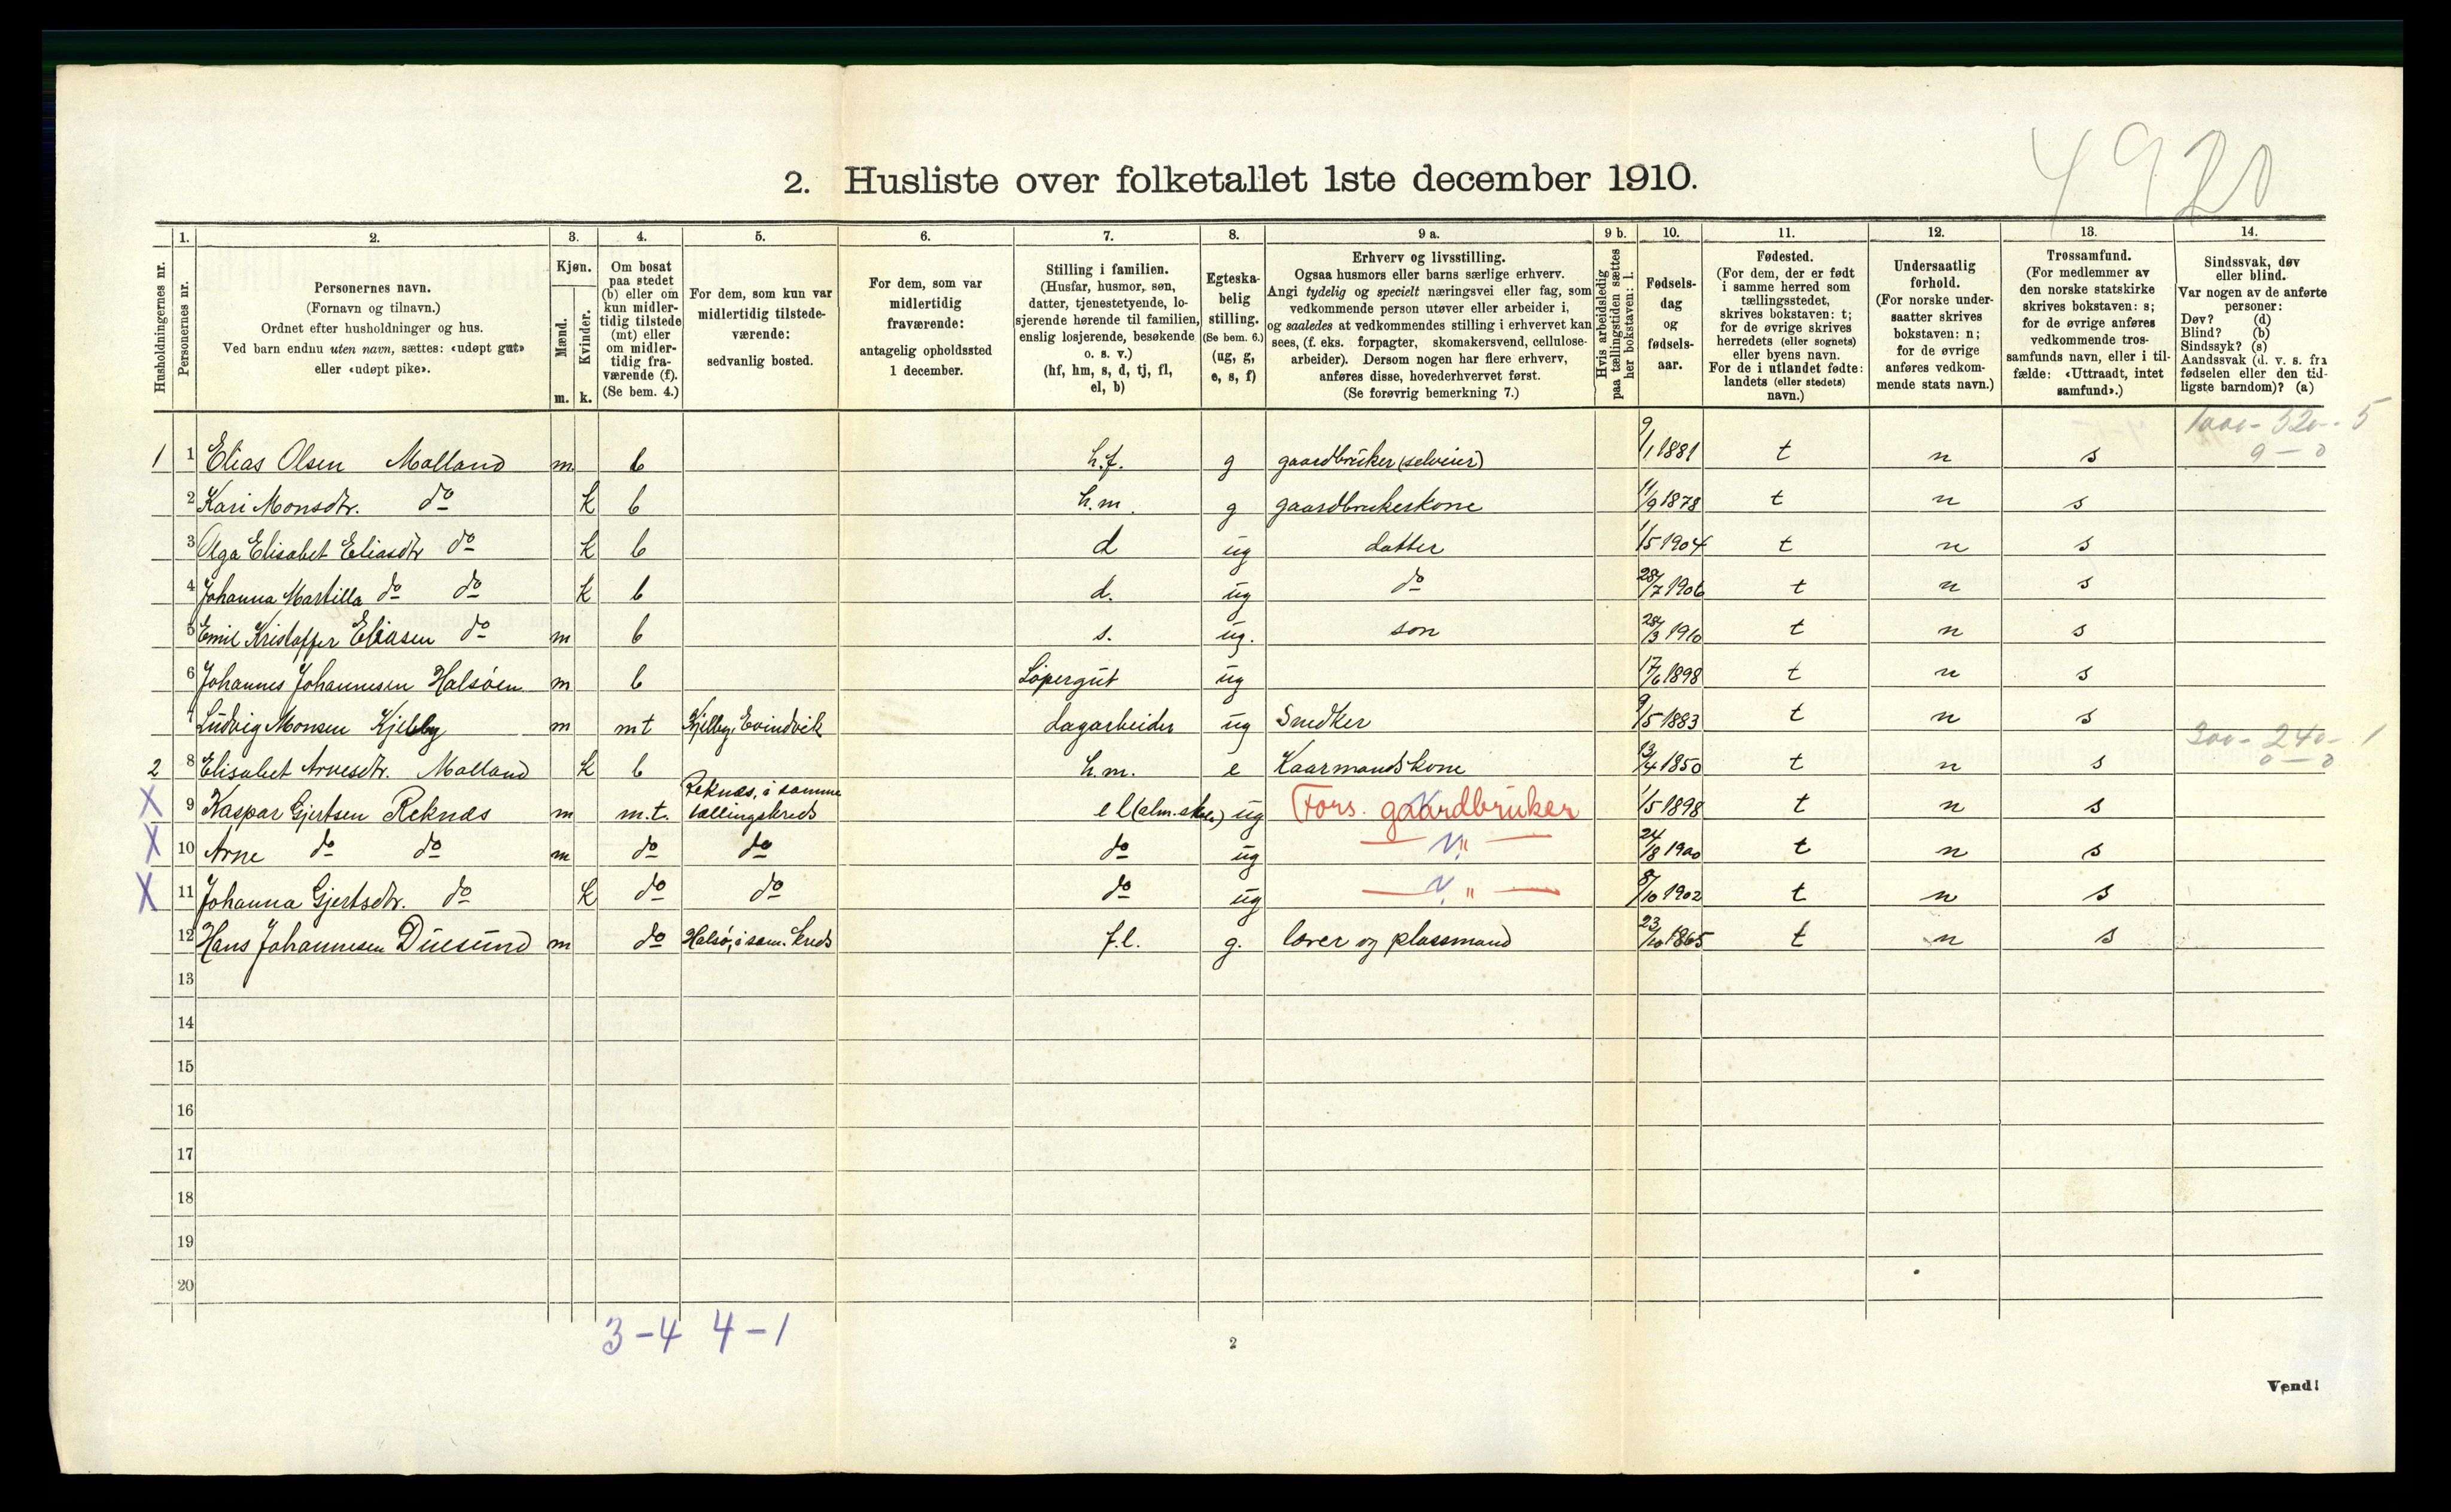 4920
2. Husliste over folketallet 1ste december 1910.
Husholdningernes nr.
1.
Personernes nr.
2.
Personernes navn.
(Fornavn og tilnavn.)
Ordnet efter husholdninger og hus.
Ved barn endnu uten navn, sættes: «udøpt gut»
eller «udøpt pike».
3.
Kjøn.
Mænd.
Kvinder.
m. k.
4.
Om bosat
paa stedet
(b) eller om
kun midler-
tidig tilstede
(mt) eller
om midler-
tidig fra-
værende (f).
(Se bem. 4.)
5.
For dem, som kun var
midlertidig tilstede-
værende:
sedvanlig bosted.
6.
For dem, som var
midlertidig
fraværende:
antagelig opholdssted
1 december.
7.
Stilling i familien.
(Husfar, husmor, søn,
datter, tjenestetyende, lo-
sjerende hørende til familien,
enslig losjerende, besøkende
o. s. v.)
(hf, hm, s, d, tj, fl,
el, b)
8.
Egteska-
belig
stilling.
(Se bem. 6.)
(ug, g,
e, s, f)
9 a.
Erhverv og livsstilling.
Ogsaa husmors eller barns særlige erhverv.
Angi tydelig og specielt næringsvei eller fag, som
vedkommende person utøver eller arbeider i,
og saaledes at vedkommendes stilling i erhvervet kan
sees, (f. eks. forpagter, skomakersvend, cellulose-
arbeider). Dersom nogen har flere erhverv,
anføres disse, hovederhvervet først.
(Se forøvrig bemerkning 7.)
9 b.
Hvis arbeidsledig
paa tællingstiden sættes
her bokstaven: l.
10.
Fødsels-
dag
og
fødsels-
aar.
11.
Fødested.
(For dem, der er født
i samme herred som
tællingsstedet,
skrives bokstaven: t;
for de øvrige skrives
herredets (eller sognets)
eller byens navn.
For de i utlandet fødte:
landets (eller stedets)
navn.)
12.
Undersaatlig
forhold.
(For norske under-
saatter skrives
bokstaven: n;
for de øvrige
anføres vedkom-
mende stats navn.)
13.
Trossamfund.
(For medlemmer av
den norske statskirke
skrives bokstaven: s;
for de øvrige anføres
vedkommende tros-
samfunds navn, eller i til-
fælde: «Uttraadt, intet
samfund».)
14.
Sindssvak, døv
eller blind.
Var nogen av de anførte
personer:
Døv? (d)
Blind? (b)
Sindssyk? (s)
Aandssvak (d. v. s. fra
fødselen eller den tid-
ligste barndom)? (a)
1000 - 320 - 5
9 - 0
1 1 Elias Olsen Malland m b h.f. g gaardbruker (selveier) 9/1 1881 t n s
2 Kari Monsdtr. do k b h.m. g gaardbrukerkone 11/9 1878 t n s
3 Olga Elisabet Eliasdtr do k b d ug datter 1/5 1904 t n s
4 Johanna Martilla do do k b d. ug do 28/7 1906 t n s
5 Emil Kristoffer Eliasen do m b s. ug. søn 28/3 1910 t n s
6 Johannes Johannesen Halsøen m b Løpergut ug 17/6 1898 t n s
7 Ludvig Monsen Kjelby m mt Kjelby, Evindvik dagarbeider ug Snedker 9/5 1883 t n s
300 - 240 - 1
0 - 0
2 8 Elisabet Arnesdtr. Malland k b h.m. e Kaarmandskone 13/4 1850 t n s
X 9 Kaspar Gjertsen Reknæs m m.t. Reknæs, i samme tællingskreds el (alm. skole) ug Fors. gaardbruker 1/5 1898 t n s
X 10 Arne do do m do do do ug — " — 24/8 1900 t n s
X 11 Johanna Gjertsdtr. do k do do do ug — " — 8/10 1902 t n s
12 Hans Johannesen Duesund m do Halsø, i sam. kreds f.l. g. lærer og plassmand 23/10 1865 t n s
13
14
15
16
17
18
19
20
3 - 4 4 - 1
2
Vend!